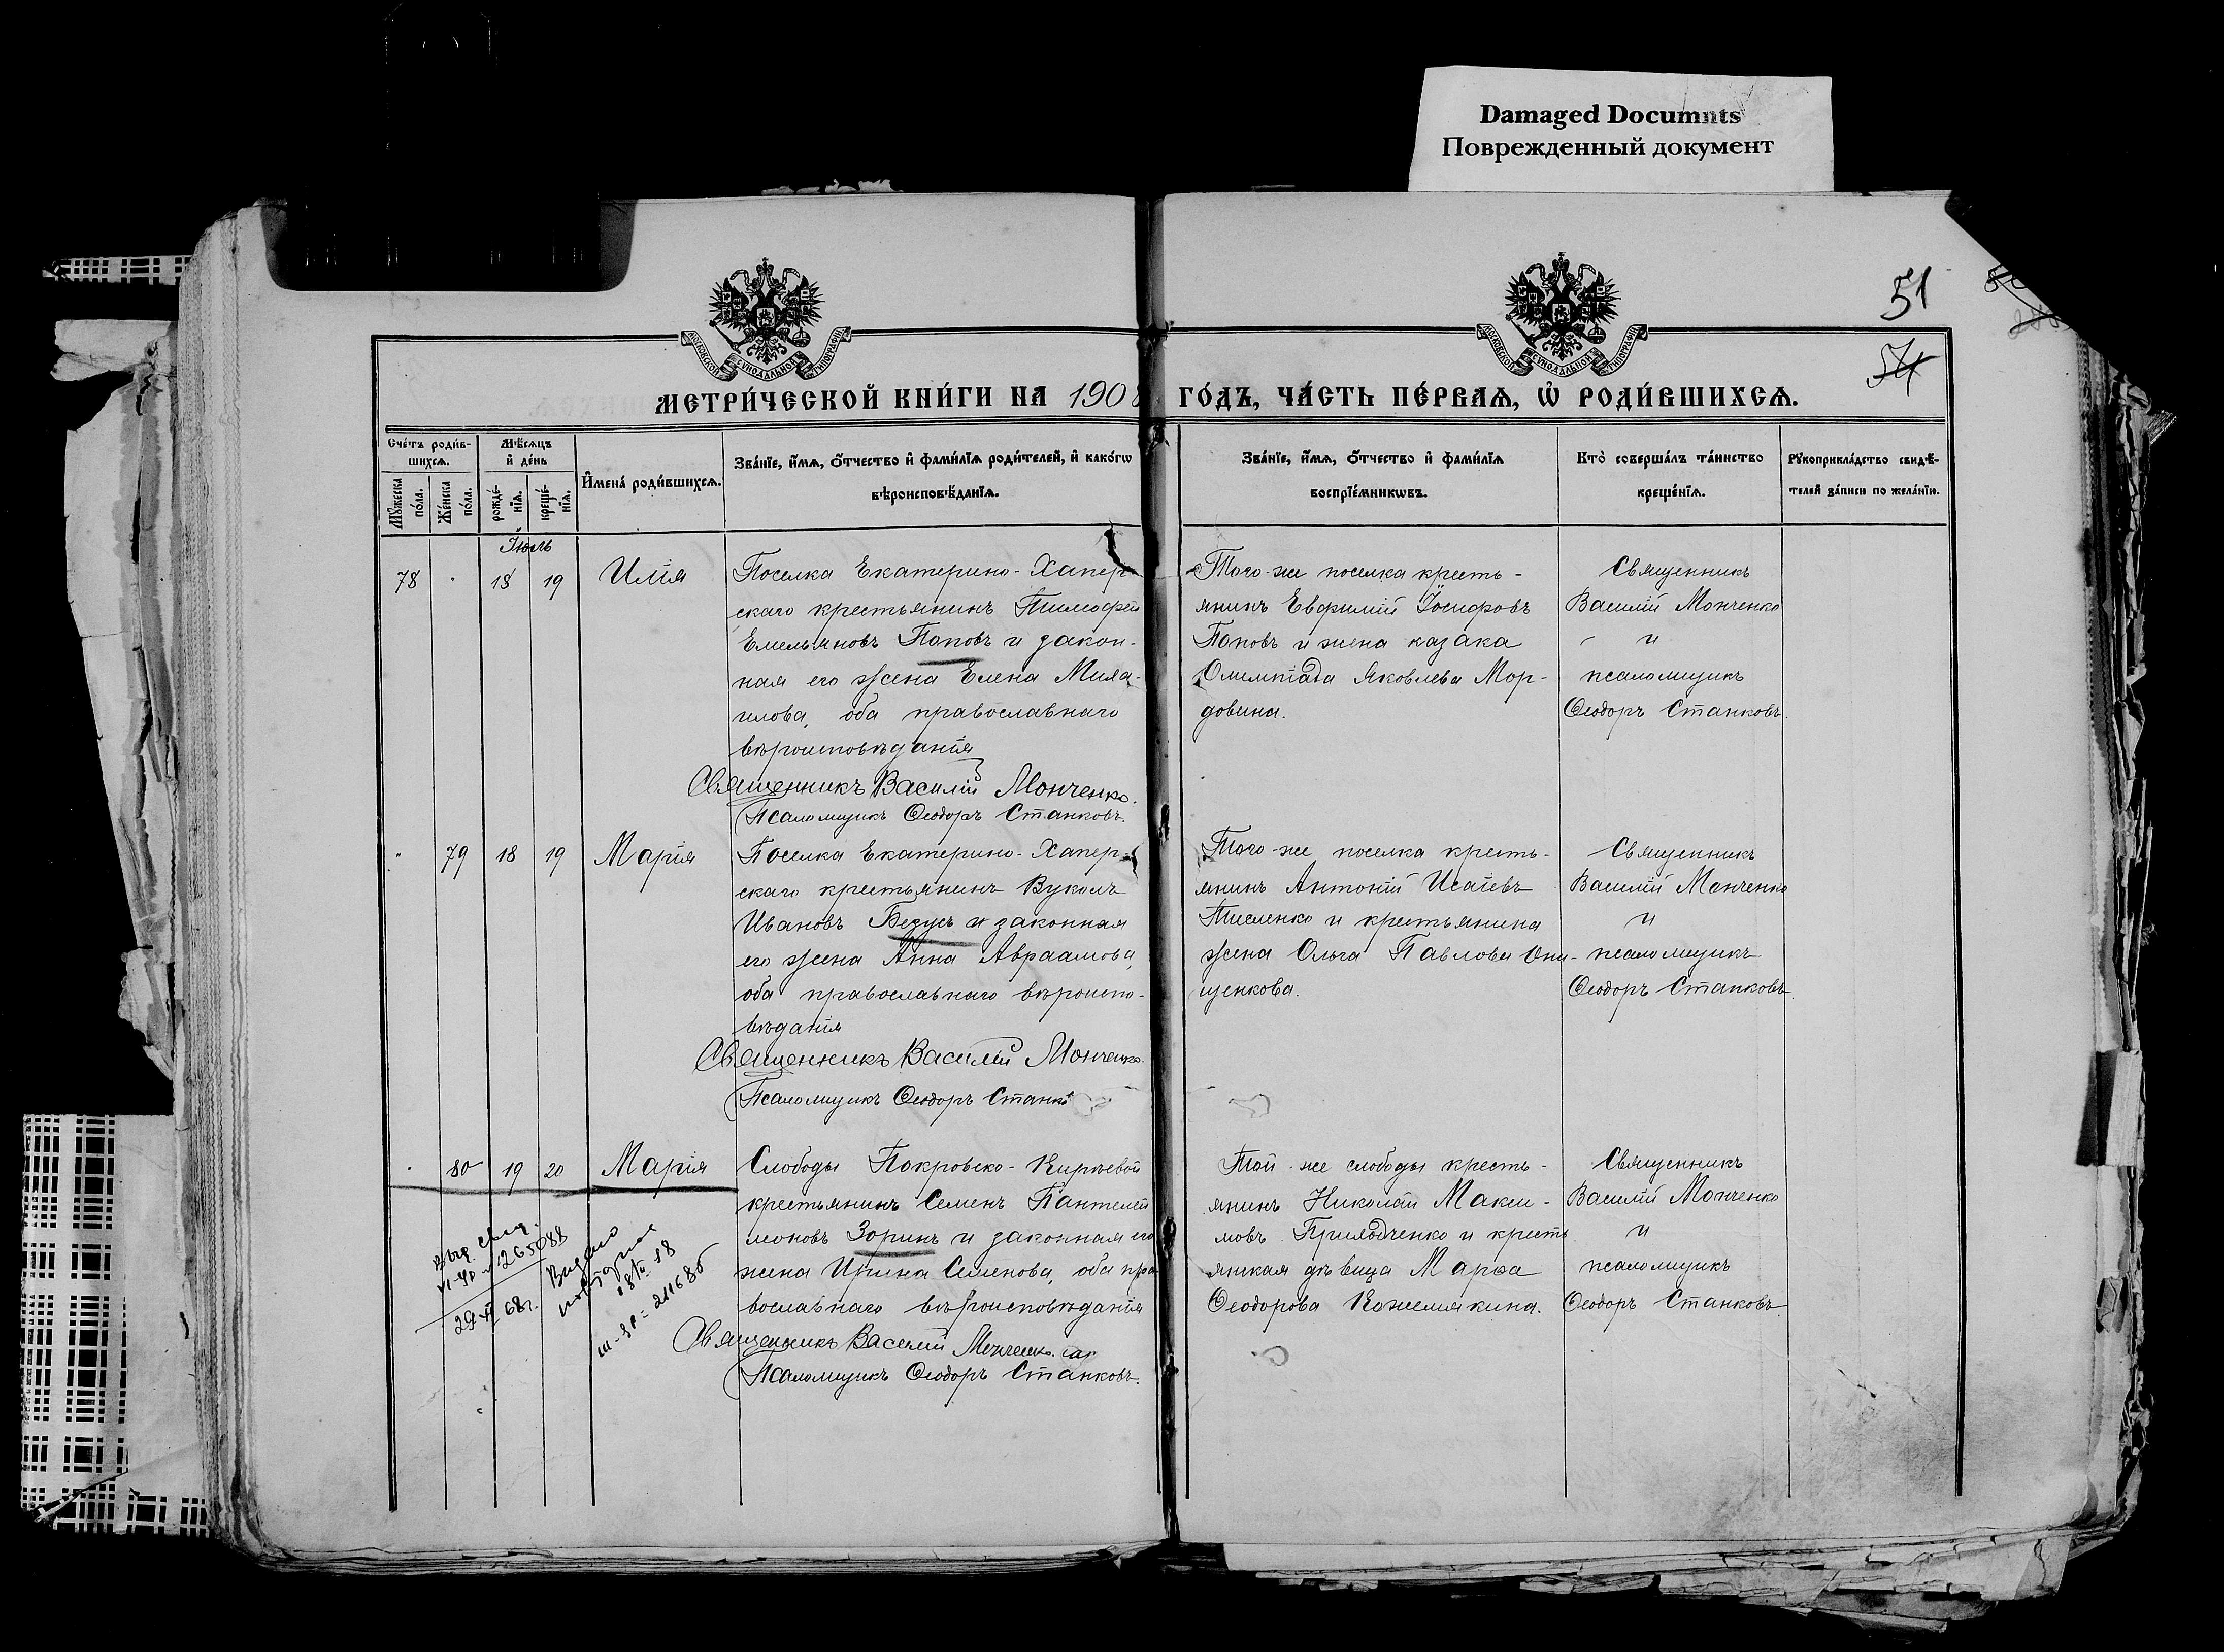 Damaged Documnts
Поврежденный документ
51
54
МОСКОВСКОЙ СѴНОДАЛЬНОЙ ТИПОГРАФІИ
МОСКОВСКОЙ СѴНОДАЛЬНОЙ ТИПОГРАФІИ
МЕТРИ́ЧЕСКОЙ КНИ́ГИ НА 1908 ГО́ДЪ, ЧА́СТЬ ПЕ́РВАѦ, Ѡ҆ РОДИ́ВШИХСѦ.
Сче́тъ роди́в-
шихсѧ.
Мꙋ́жеска по́ла.
Же́нска по́ла.
Мѣ́сѧцъ
и҆ де́нь
рожде́-
нїѧ.
креще́-
нїѧ.
И҆мена̀ роди́вшихсѧ.
Зва́нїе, и҆́мѧ, ѻ҆́тчество и҆ фами́лїѧ роди́телей, и҆ како́гѡ
вѣроисповѣ́данїѧ.
Зва́нїе, и҆́мѧ, ѻ҆́тчество и҆ фами́лїѧ
воспрїе́мникѡвъ.
Кто̀ соверша́лъ та́инство
креще́нїѧ.
Рꙋкоприкла́дство свидѣ́-
телей за́писи по жела́нїю.
Іюль
78 " 18 19 Илія
Поселка Екатерино-Хапер-
скаго крестьянинъ Тимофей
Емельяновъ Поповъ и закон-
ная его жена Елена Миха-
илова, оба православнаго
вѣроисповѣданія
Священникъ Василій Мончѣнко.
Псаломщикъ Ѳеодоръ Станковъ.
Того-же поселка кресть-
янинъ Евфимій Іосифовъ
Поповъ и жена казака
Олимпіада Яковлева Мор-
довина.
Священникъ
Василій Монченко
и
псаломщикъ
Ѳеодоръ Станковъ.
" 79 18 19 Марія
Поселка Екатерино-Хапер-
скаго крестьянинъ Вуколъ
Ивановъ Безусъ и законная
его жена Анна Авраамова,
оба православнаго вѣроиспо-
вѣданія
Священникъ Василій Монченко.
Псаломщикъ Ѳеодоръ Станк
Того-же поселка кресть-
янинъ Антоній Исаіевъ
Тисленко и крестьянина
жена Ольга Павлова Они-
щенкова.
Священникъ
Василій Монченко
и
псаломщикъ
Ѳеодоръ Станковъ.
" 80 19 20 Марія
Слободы Покровско-Кирѣевой
крестьянинъ Семенъ Пантелей
моновъ Зоринъ и законная его
жена Ирина Семенова, оба пра
вославнаго вѣроисповѣданія
Священникъ Василій Монченко.
Псаломщикъ Ѳеодоръ Станковъ.
Той-же слободы кресть-
янинъ Николай Макси-
мовъ Приходченко и кресть
янская дѣвица Марѳа
Ѳеодорова Кожемякина.
Священникъ
Василій Монченко
и
псаломщикъ
Ѳеодоръ Станковъ
Выд. свид.
VI-ЯР № 265088
68г.
Видано
повторное
III-ЯР= 211686